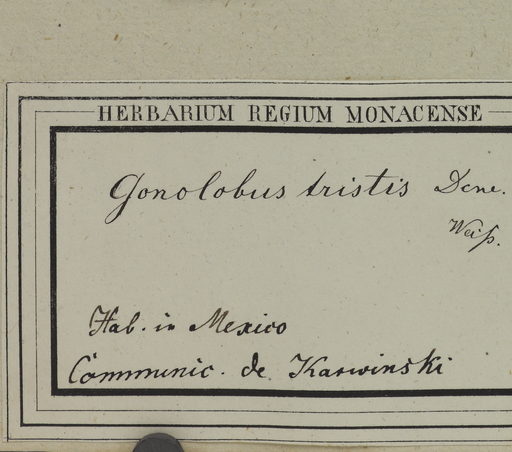 HERBARIUM REGIUM MONACENSE
Gonolobus tristis Dcne.
Weiß.
Hab. in Mexico
Communic. de Karwinski